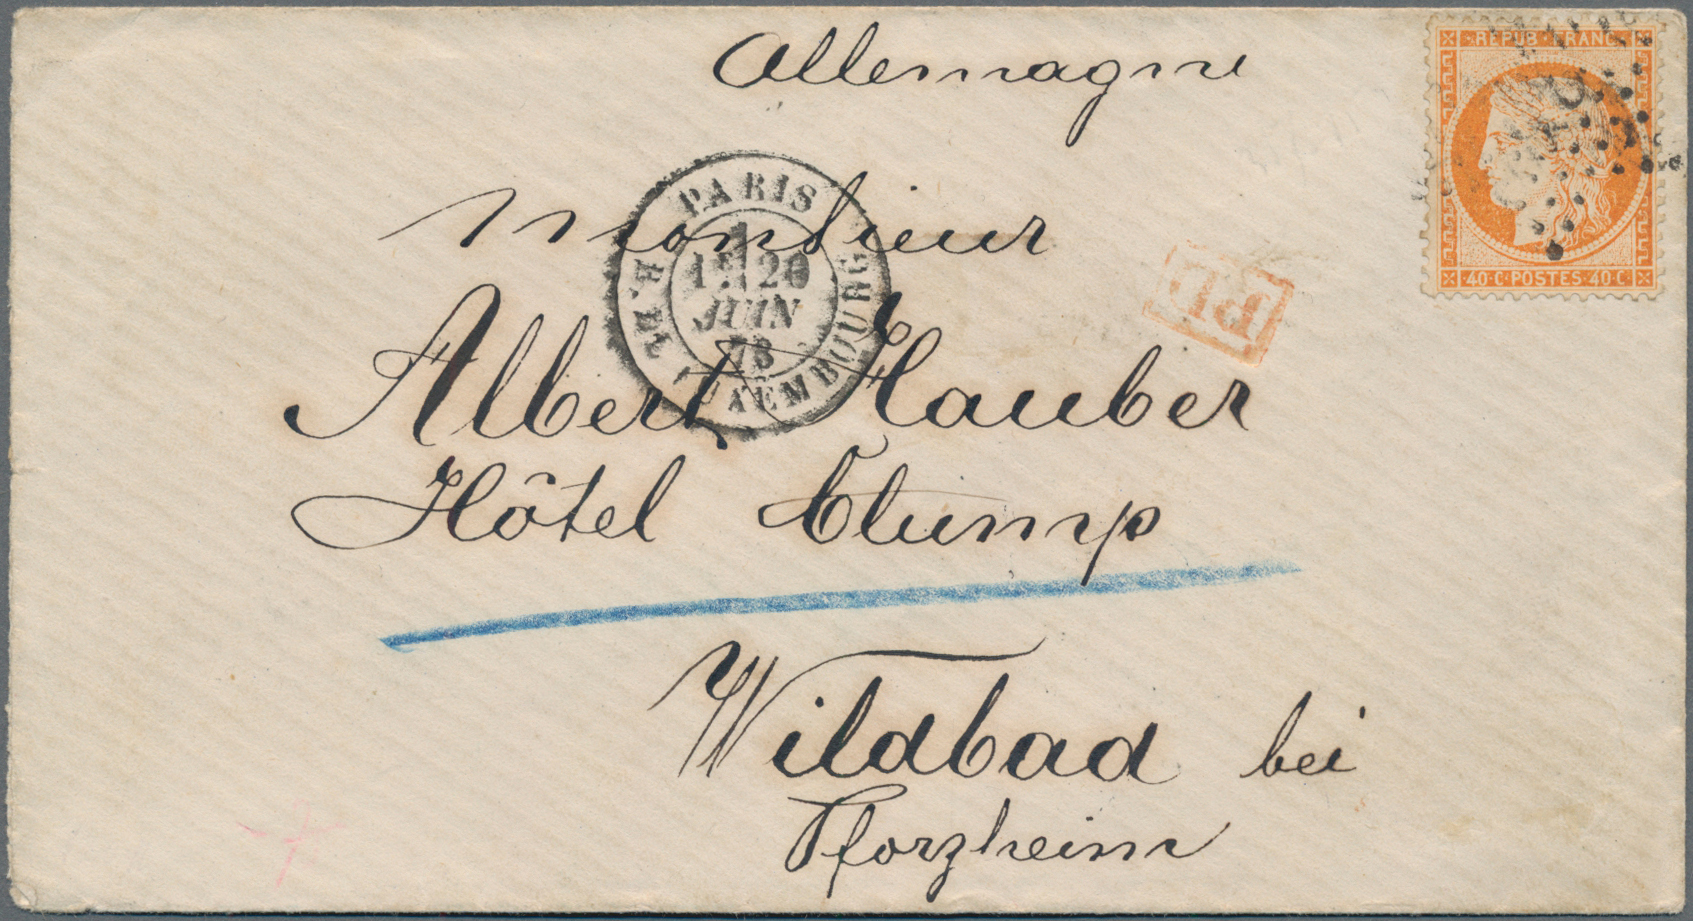 Allemagne
REPUB·FRANC·
40·C·POSTES·40·C·
PARIS
JUIN
73
LUXEMBOURG
PD
Monsieur
Albert Hauber
Hôtel Clump
Wildbad bei
Pforzheim